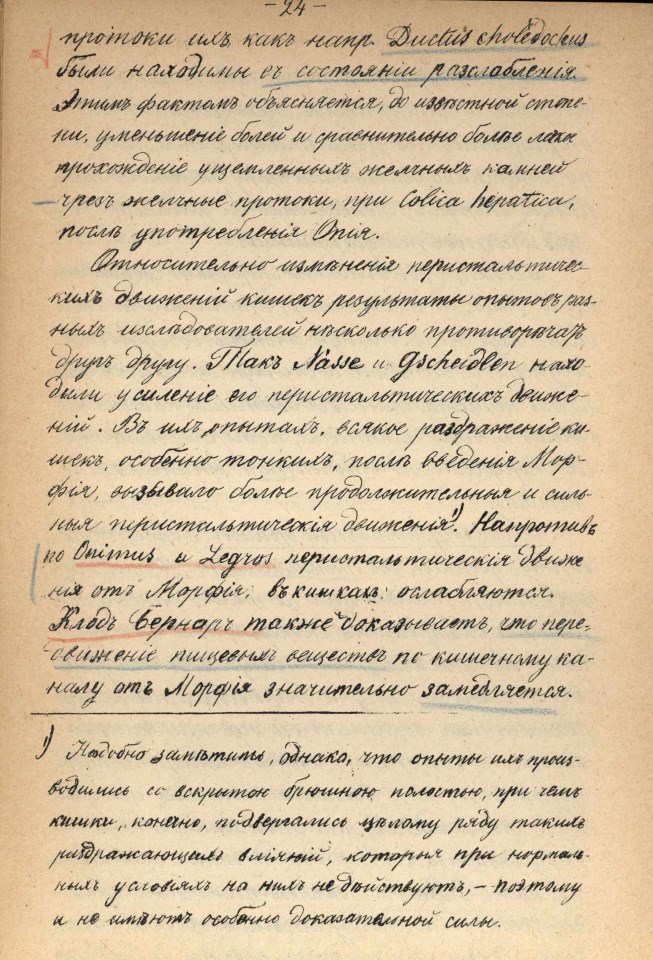 -24-
протоки ихъ какъ напр. Ductus choledochus
были находимы въ состояніи разслабленія.
Этимъ фактомъ объясняется, до извѣстной степе-
ни, уменьшеніе болей и сравнительно болѣе легкое
прохожденіе ущемленныхъ желчныхъ камней
чрезъ желчные протоки, при Colica hepatica,
послѣ употребленія Опія.
Относительно измѣненія перистальтичес-
кихъ движеній кишекъ результаты опытовъ раз-
ныхъ изслѣдователей нѣсколько противорѣчатъ
другъ другу. Такъ Nasse и Gscheidlen нахо-
дили усиленіе его перистальтическихъ движе-
ній. Въ ихъ опытахъ, всякое раздраженіе ки-
шекъ, особенно тонкихъ, послѣ введенія Мор-
фія, вызывало болѣе продолжительныя и силь-
ныя перистальтическія движенія¹). Напротивъ
по Onimus и Legros перистальтическія движе
нія отъ Морфія, въ кишкахъ, ослабляются.
Клодъ Бернаръ также доказываетъ, что пере-
движеніе пищевыхъ веществъ по кишечному ка-
налу отъ Морфія значительно замедляется.
¹) Надобно замѣтить, однако, что опыты ихъ произ-
водились со вскрытою брюшною полостью, при чемъ
кишки, конечно, подвергались цѣлому ряду такихъ
раздражающихъ вліяній, которыя при нормаль-
ныхъ условіяхъ на нихъ не дѣйствуютъ, – поэтому
и не имѣютъ особенно доказательной силы.